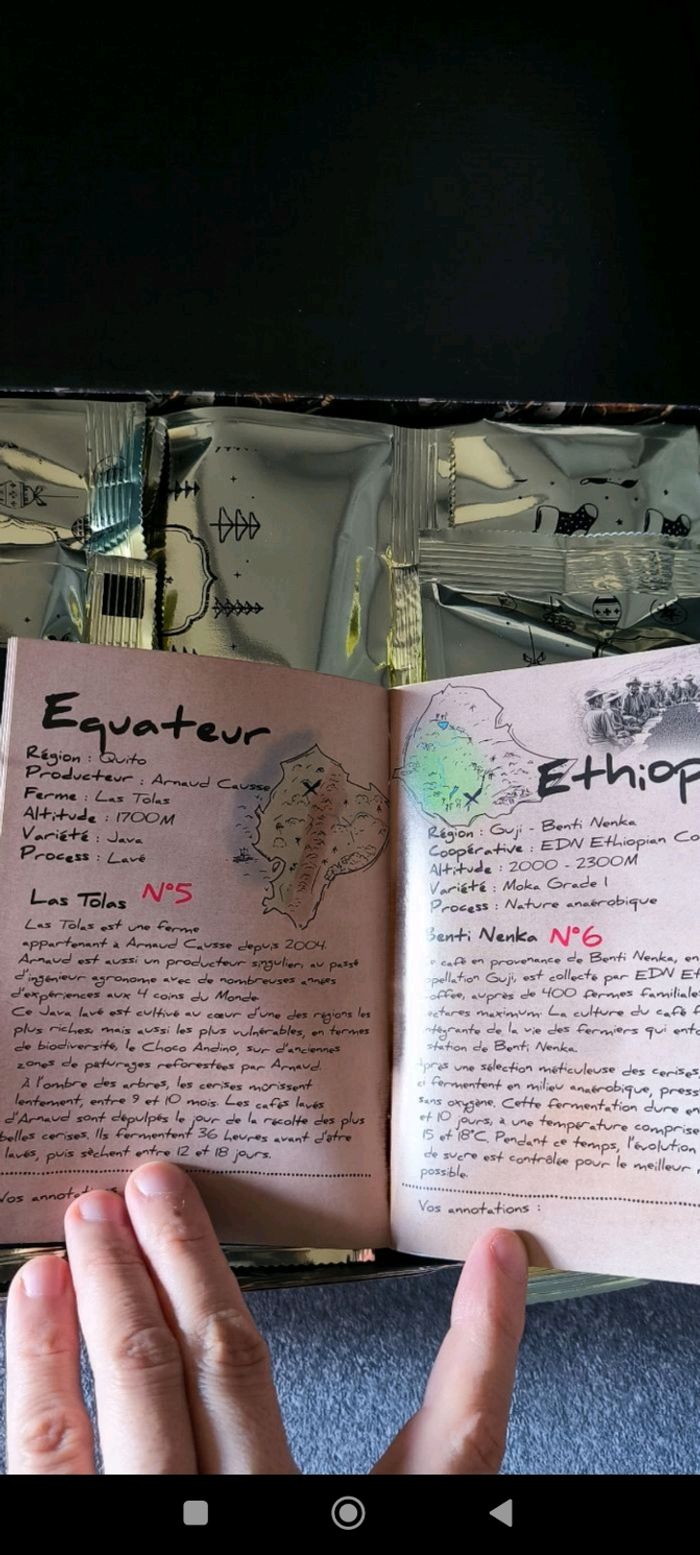 Equateur
Région : Quito
Producteur : Arnaud Causse
Ferme : Las Tolas
Altitude : 1700M
Variété : Java
Process : Lavé
Las Tolas N°5
Las Tolas est une ferme
appartenant à Arnaud Causse depuis 2004.
Arnaud est aussi un producteur singulier, au passé
d'ingénieur agronome avec de nombreuses années
d'expériences aux 4 coins du Monde.
Ce Java lavé est cultivé au cœur d'une des régions les
plus riches, mais aussi les plus vulnérables, en termes
de biodiversité, le Choco Andino, sur d'anciennes
zones de pâturages reforestées par Arnaud.
À l'ombre des arbres, les cerises mûrissent
lentement, entre 9 et 10 mois. Les cafés lavés
d'Arnaud sont dépulpés le jour de la récolte des plus
belles cerises. Ils fermentent 36 heures avant d'être
lavés, puis sèchent entre 12 et 18 jours.
Vos annotations
Ethiop
Région : Guji - Benti Nenka
Coopérative : EDN Ethiopian Co
Altitude : 2000 - 2300M
Variété : Moka Grade 1
Process : Nature anaérobique
Benti Nenka N°6
café en provenance de Benti Nenka, en
pellation Guji, est collecté par EDN Et
offee, auprès de 400 fermes familiale
ectares maximum. La culture du café f
ntégrante de la vie des fermiers qui ento
station de Benti Nenka.
près une sélection méticuleuse des cerises,
ci fermentent en milieu anaérobique, press
sans oxygène. Cette fermentation dure e
et 10 jours, à une température comprise
15 et 18°C. Pendant ce temps, l'évolution
de sucre est contrôlée pour le meilleur r
possible.
Vos annotations :